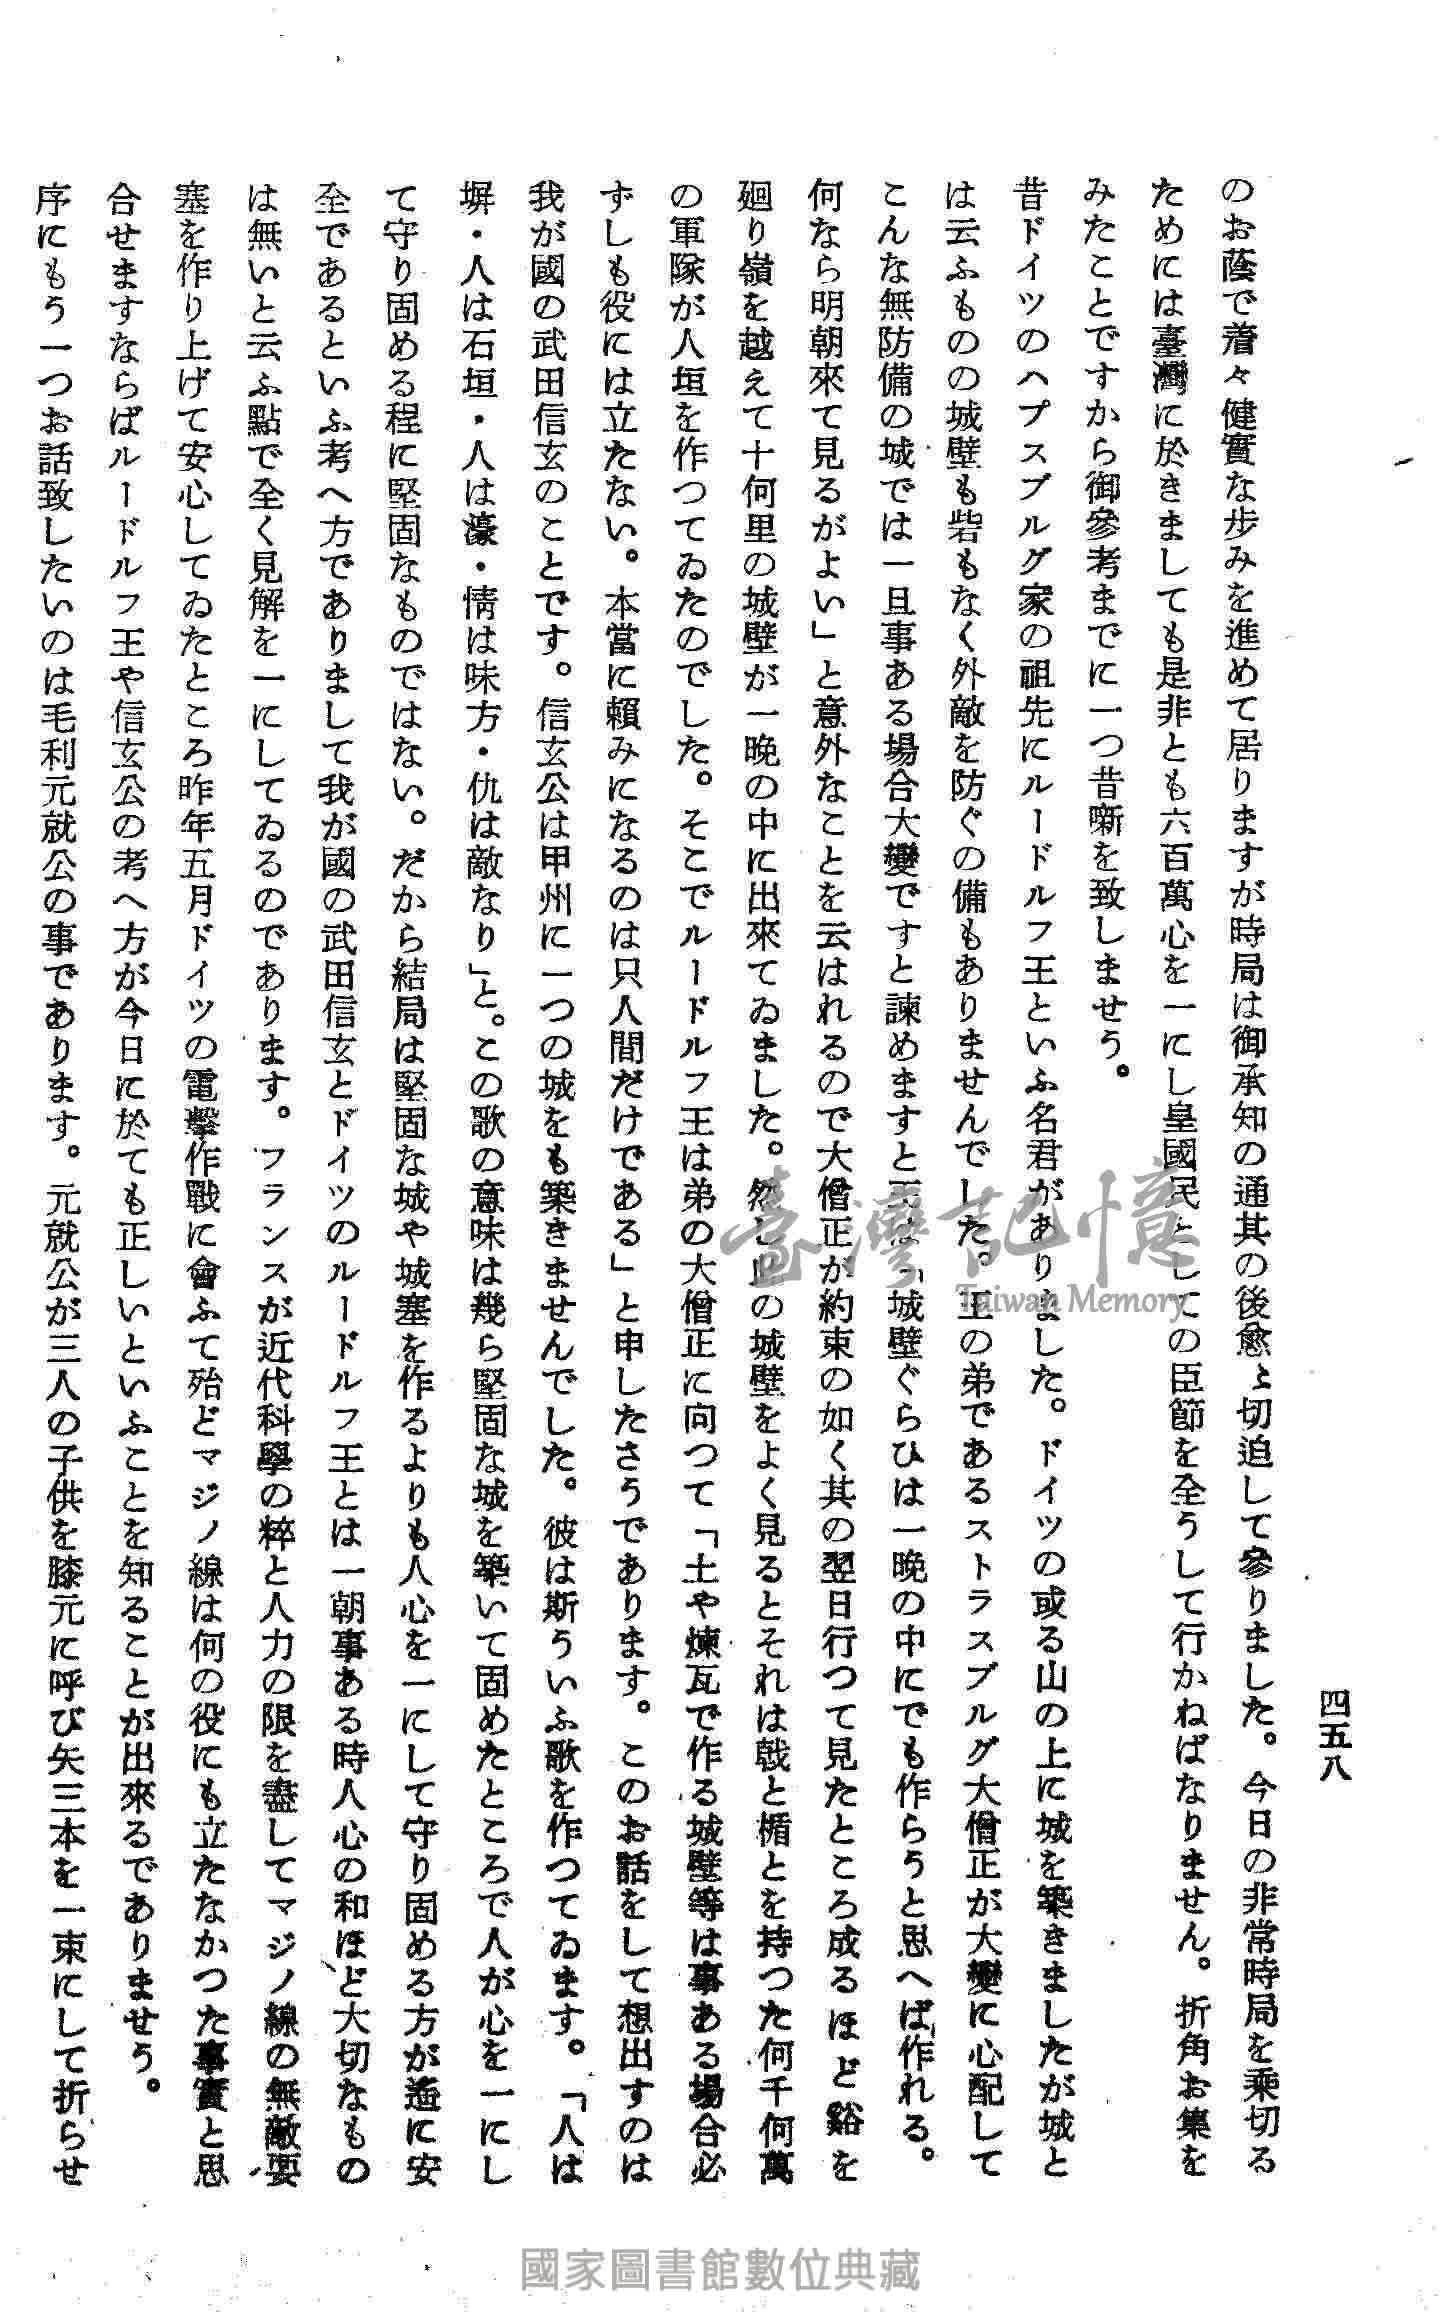 四五八
のお蔭で着々健實な步みを進めて居りますが時局は御承知の通其の後愈〻切迫して參りました。今日の非常時局を乘切る
ためには臺灣に於きましても是非とも六百萬心を一にし皇國民としての臣節を全うして行かねばなりません。折角お集を
みたことですから御參考までに一つ昔噺を致しませう。
昔ドイツのハプスブルグ家の祖先にルードルフ王といふ名君がありました。ドイツの或る山の上に城を築きましたが城と
は云ふものの城壁も砦もなく外敵を防ぐの備もありませんでした。王の弟であるストラスブルグ大僧正が大變に心配して
こんな無防備の城では一旦事ある場合大變ですと諫めますと王は「城壁ぐらひは一晩の中にでも作らうと思へば作れる。
何なら明朝來て見るがよい」と意外なことを云はれるので大僧正が約束の如く其の翌日行つて見たところ成るほど谿を
廻り嶺を越えて十何里の城壁が一晩の中に出來てゐました。然し此の城壁をよく見るとそれは戟と楯とを持つた何千何萬
の軍隊が人垣を作つてゐたのでした。そこでルードルフ王は弟の大僧正に向つて「土や煉瓦で作る城壁等は事ある場合必
ずしも役には立たない。本當に賴みになるのは只人間だけである」と申したさうであります。このお話をして想出すのは
我が國の武田信玄のことです。信玄公は甲州に一つの城をも築きませんでした。彼は斯ういふ歌を作つてゐます。「人は
塀・人は石垣・人は濠・情は味方・仇は敵なり」と。この歌の意味は幾ら堅固な城を築いて固めたところで人が心を一にし
て守り固める程に堅固なものではない。だから結局は堅固な城や城塞を作るよりも人心を一にして守り固める方が遙に安
全であるといふ考へ方でありまして我が國の武田信玄とドイツのルードルフ王とは一朝事ある時人心の和ほど大切なもの
は無いと云ふ點で全く見解を一にしてゐるのであります。フランスが近代科學の粹と人力の限を盡してマジノ線の無敵要
塞を作り上げて安心してゐたところ昨年五月ドイツの電擊作戰に會ふて殆どマジノ線は何の役にも立たなかつた事實と思
合せますならばルードルフ王や信玄公の考へ方が今日に於ても正しいといふことを知ることが出來るでありませう。
序にもう一つお話致したいのは毛利元就公の事であります。元就公が三人の子供を膝元に呼び矢三本を一束にして折らせ
臺灣記憶
Taiwan Memory
國家圖書館數位典藏